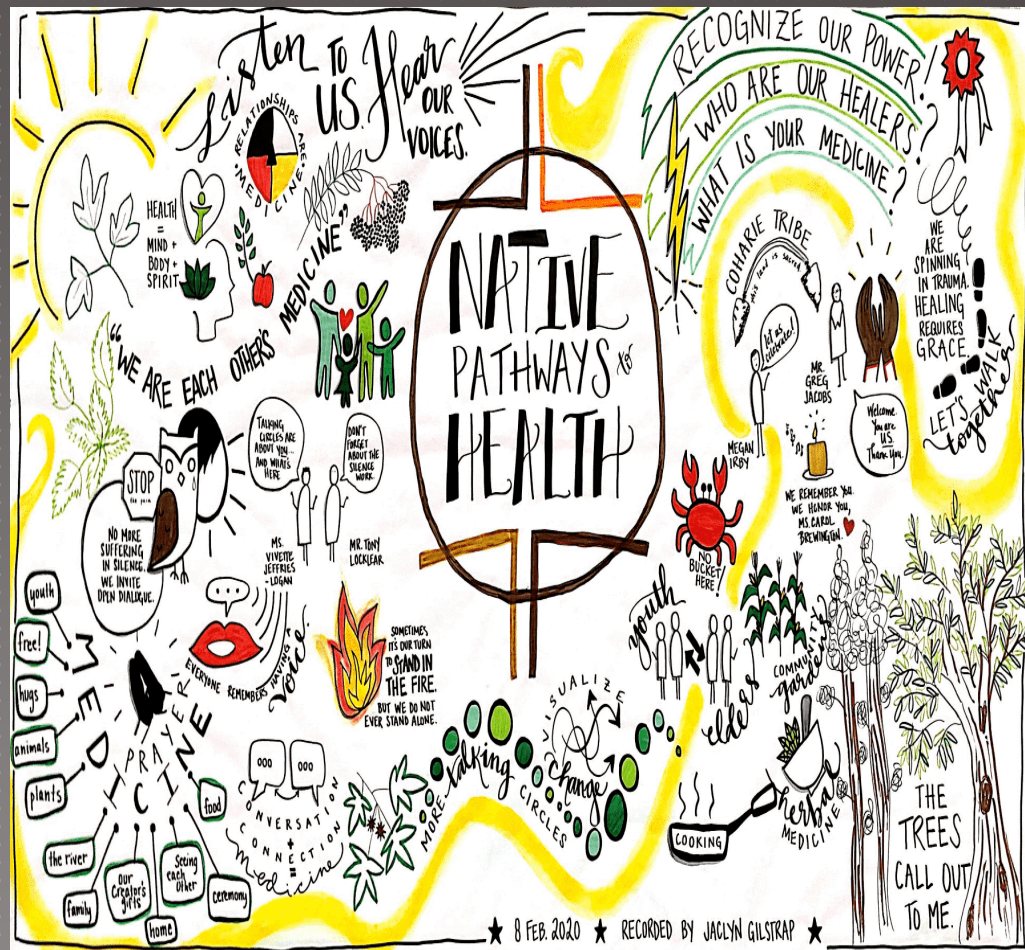 Listen TO
US. Hear
OUR
VOICES.
RELATIONSHIPS ARE
MEDICINE.
HEALTH
=
MIND +
BODY +
SPIRIT
"WE ARE EACH OTHER'S MEDICINE"
NATIVE
PATHWAYS to
HEALTH
RECOGNIZE OUR POWER!
WHO ARE OUR HEALERS?
WHAT IS YOUR MEDICINE?
COHARIE TRIBE
this land is sacred
let us
celebrate!
MEGAN
IRBY
MR.
GREG
JACOBS
Welcome.
You are
US.
Thank You.
WE
ARE
SPINNING
IN TRAUMA.
HEALING
REQUIRES
GRACE.
LET'S WALK
together
WE REMEMBER YOU.
WE HONOR YOU,
MS. CAROL
BREWINGTON.
NO
BUCKET
HERE!
STOP
the pain
NO MORE
SUFFERING
IN SILENCE.
WE INVITE
OPEN DIALOGUE.
TALKING
CIRCLES ARE
ABOUT YOU...
AND WHAT'S
HERE
DON'T
FORGET
ABOUT THE
SILENCE
WORK.
MS.
VIVETTE
JEFFRIES
-LOGAN
MR. TONY
LOCKLEAR
EVERYONE REMEMBERS HAVING A
voice.
SOMETIMES
IT'S OUR TURN
TO STAND IN
THE FIRE.
BUT WE DO NOT
EVER STAND ALONE.
MEDICINE
PRAYER
youth
free!
hugs
animals
plants
the river
family
our
Creator's
gifts
home
Seeing
each
other
ceremony
food
CONVERSATION
+
CONNECTION
=
medicine
MORE talking
CIRCLES
VISUALIZE
change
youth
elders
COMMUNITY
gardens
COOKING
herbal
MEDICINE
THE
TREES
CALL OUT
TO ME.
★ 8 FEB. 2020 ★ RECORDED BY JACLYN GILSTRAP ★